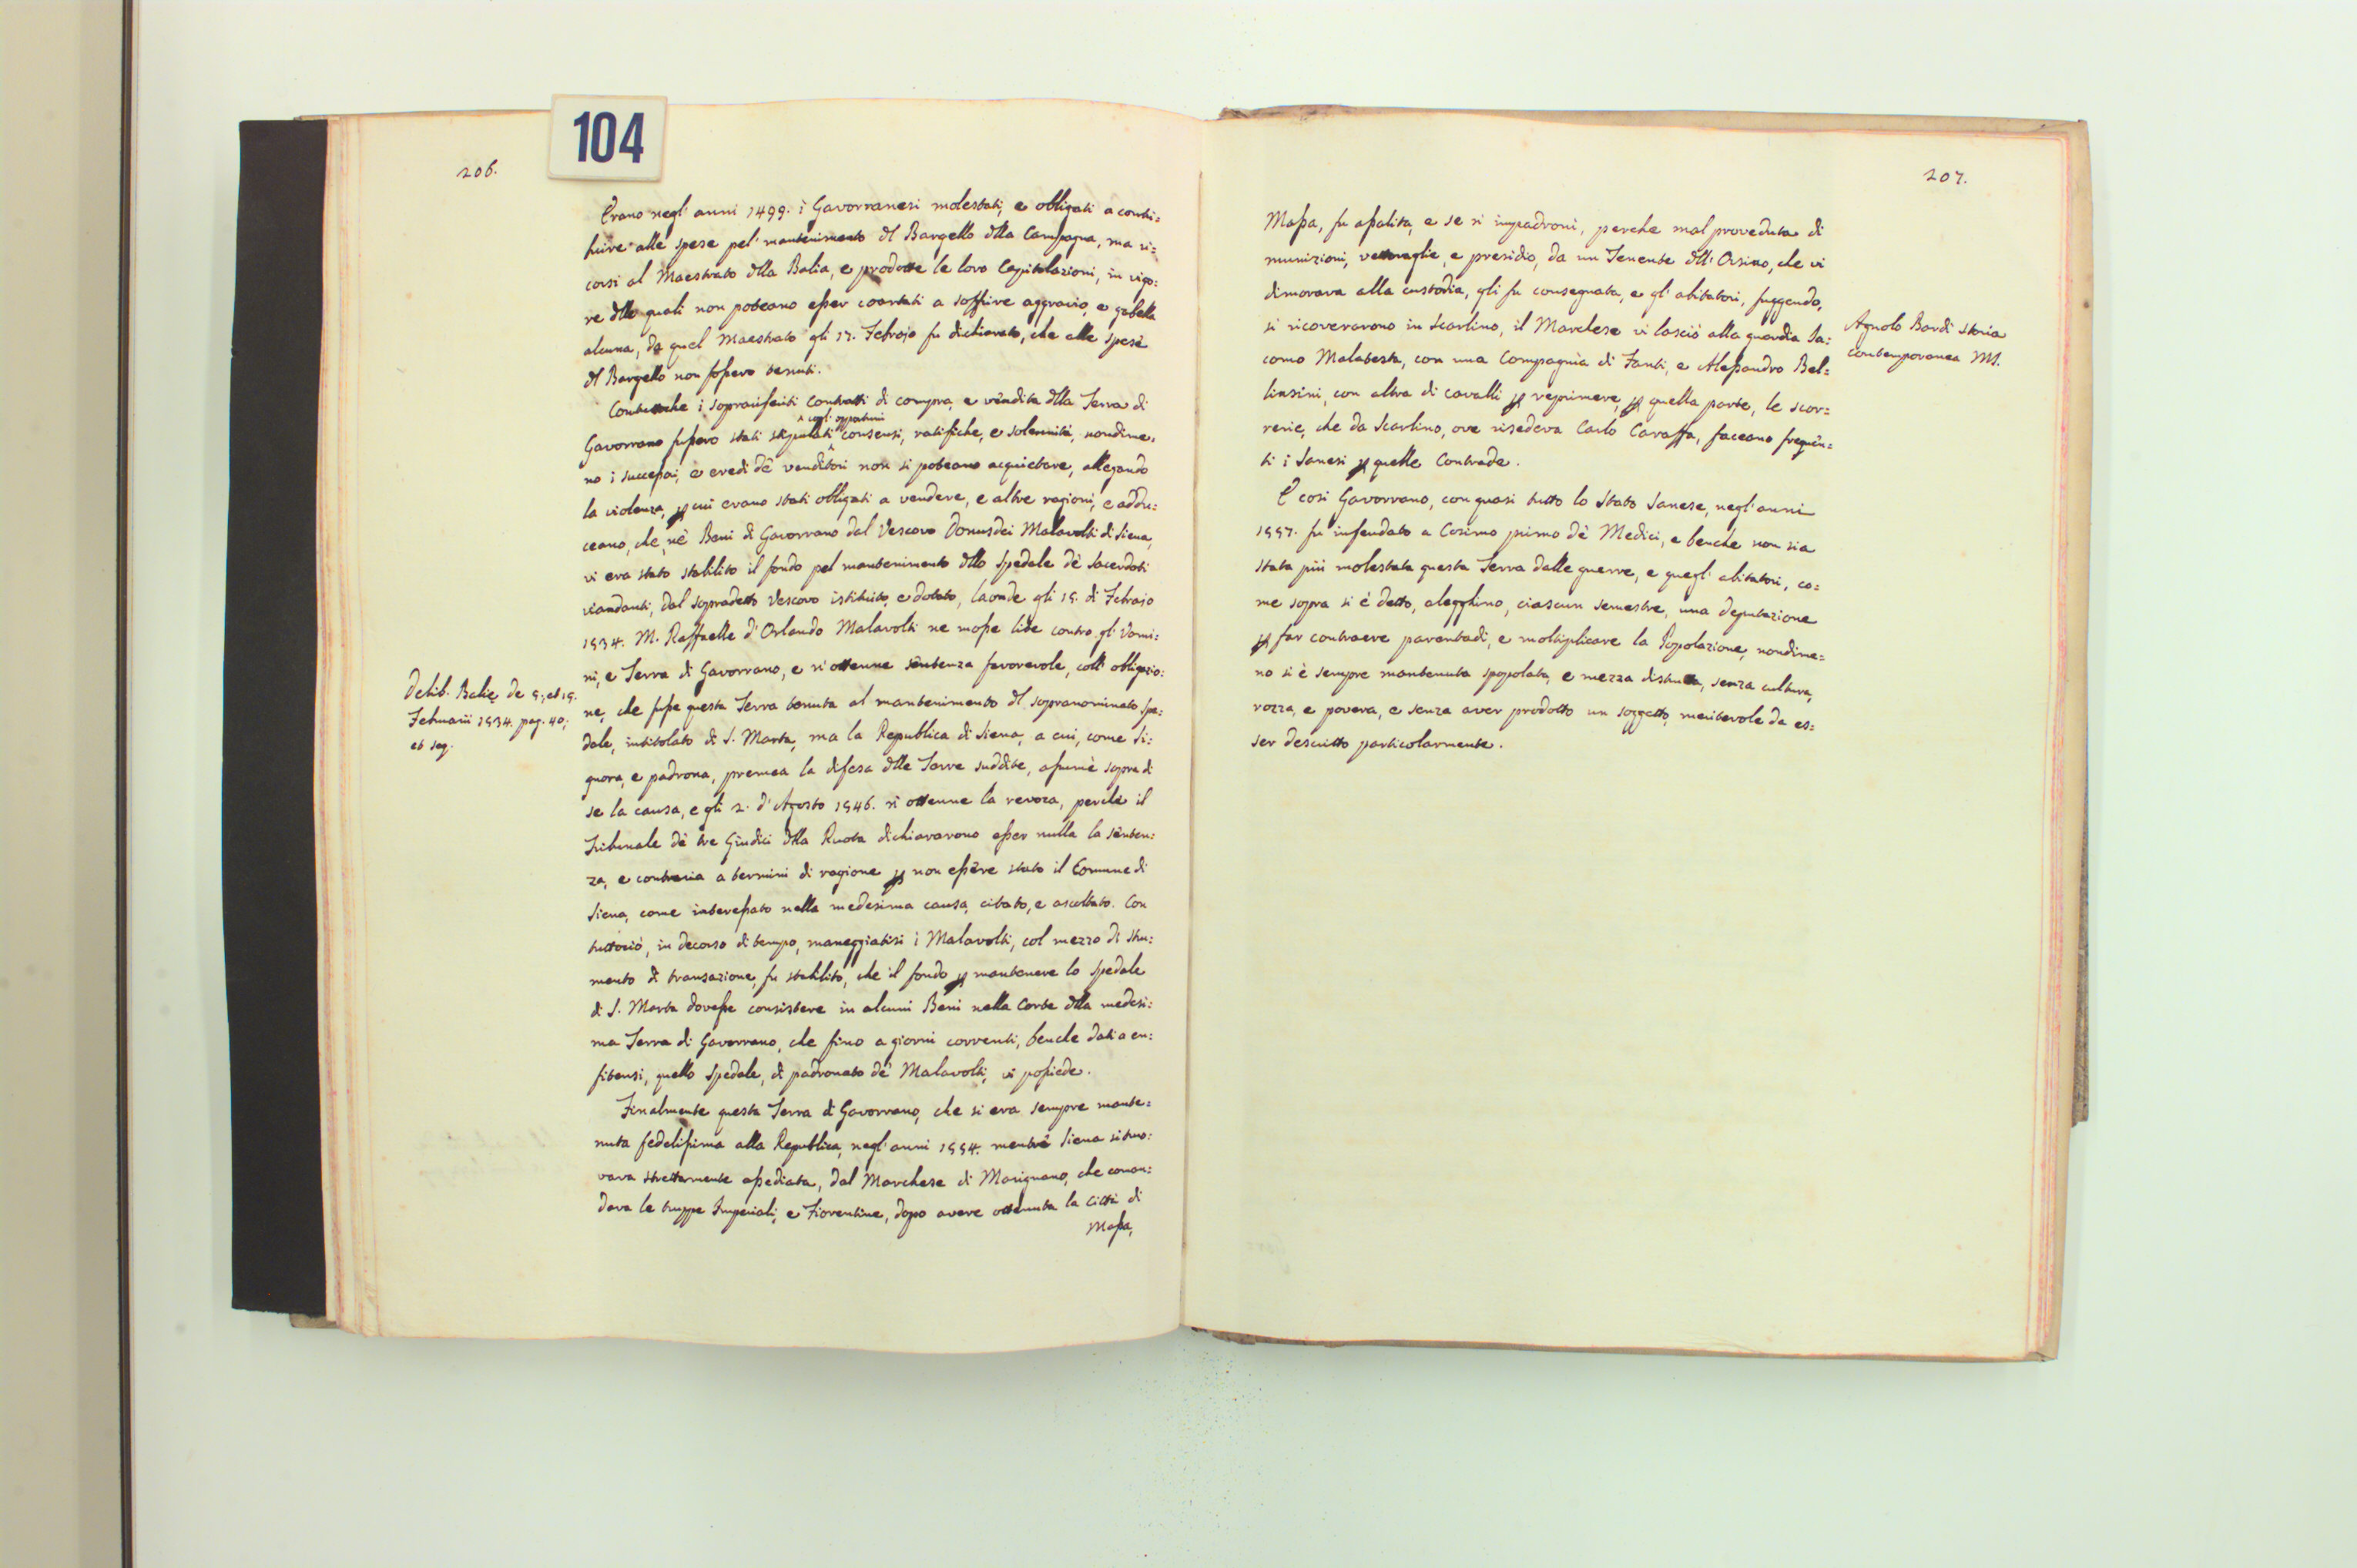 104
206.
Erano negl' anni 1499. i Gavorranesi molestati, e obligati a contri=
buire alle spese pel' mantenimento dl Bargello dlla Campagna, ma ri=
corsi al Maestrato dlla Balia, e prodotte le loro Capitolazioni, in vigo=
re dlle quali non poteano esser coartati a soffrire aggravio, e gabella
alcuna, da quel Maestrato gli 17. Febrajo fu dichiarato, che alle spese
dl Bargello non fossero tenuti.
Contuttoche i soprariferiti Contratti di compra, e vendita dlla Terra di
cogl' opportuni
Gavorrano fussero stati stipulati consensi, ratifiche, e solennità, nondime=
no i successori, e eredi de' venditori non si poteano acquietare, allegando
la violenza, p cui erano stati obligati a vendere, e altre ragioni, e addu=
ceano, che, ne' Beni di Gavorrano dal Vescovo Donusdei Malavolti di Siena,
vi era stato stabilito il fondo pel mantenimento dllo Spedale de' Sacerdoti
viandanti, dal sopradetto Vescovo istituito, e dotato, laonde gli 15. di Febrajo
1534. M. Raffaelle d' Orlando Malavolti ne mosse lite contro gl' Uomi=
ni, e Terra di Gavorrano, e n' ottenne sentenza favorevole, coll' obligazio=
ne, che fusse questa Terra tenuta al mantenimento dl sopranominato Spe=
dale, intitolato di S. Marta, ma la Republica di Siena, a cui, come Si=
gnora, e padrona, premea la difesa dlle Terre suddite, assunse sopra di
se la causa, e gli 2. d' Agosto 1546. n' ottenne la revoca, perche il
Tribunale de' tre Giudici dlla Ruota dichiararono esser nulla la senten=
za, e contraria a termini di ragione p non essere stato il Comune di
Siena, come interessato nella medesima causa, citato, e ascoltato. Con
tuttociò, in decorso di tempo, maneggiatisi i Malavolti, col mezzo di stru=
mento di transazione, fu stabilito, che il fondo p mantenere lo Spedale
di S. Marta dovesse consistere in alcuni Beni nella Corte dlla medesi=
ma Terra di Gavorrano, che fino a giorni correnti, benche dati a en=
fiteusi, quello Spedale, di padronato de' Malavolti, vi possiede.
Finalmente questa Terra di Gavorrano, che si era sempre mante=
nuta fedelissima alla Republica, negl' anni 1554. mentre Siena si tro=
vava strettamente assediata, dal Marchese di Marignano, che coman=
dava le truppe Imperiali, e Fiorentine, dopo avere ottenuta la Città di
Massa,
Delib. Balię de 9., et 15.
Februarii 1534. pag. 40;
et seq.
207.
Massa, fu assalita, e se n' impadronì, perche mal proveduta di
munizioni, vettovaglie, e presidio, da un Tenente dll' Orsino, che vi
dimorava alla custodia, gli fu consegnata, e gl' abitatori, fuggendo,
si ricoverarono in Scarlino, il Marchese vi lasciò alla guardia Ja=
como Malatesta, con una Compagnia di Fanti, e Alessandro Bel=
linsini, con altra di cavalli p reprimere, p quella parte, le scor=
rerie, che da Scarlino, ove risedeva Carlo Caraffa, faceano frequen=
ti i Sanesi p quelle Contrade.
E così Gavorrano, con quasi tutto lo Stato Sanese, negl' anni
1557. fu infeudato a Cosimo primo de' Medici, e benche non sia
stata più molestata questa Terra dalle guerre, e quegl' abitatori, co=
me sopra si è detto, alegghino, ciascun semestre, una deputazione
p far contraere parentadi, e moltiplicare la Popolazione, nondime=
no si è sempre mantenuta spopolata, e mezza distrutta, senza cultura,
rozza, e povera, e senza aver prodotto un soggetto, meritevole da es=
ser descritto particolarmente.
Agnolo Bardi Storia
contemporanea MS.